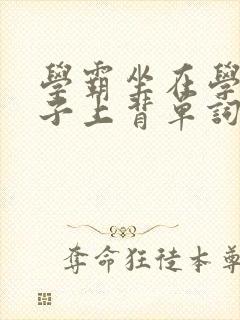 學霸坐在學
子上背單詞
奪命狂徒本尊